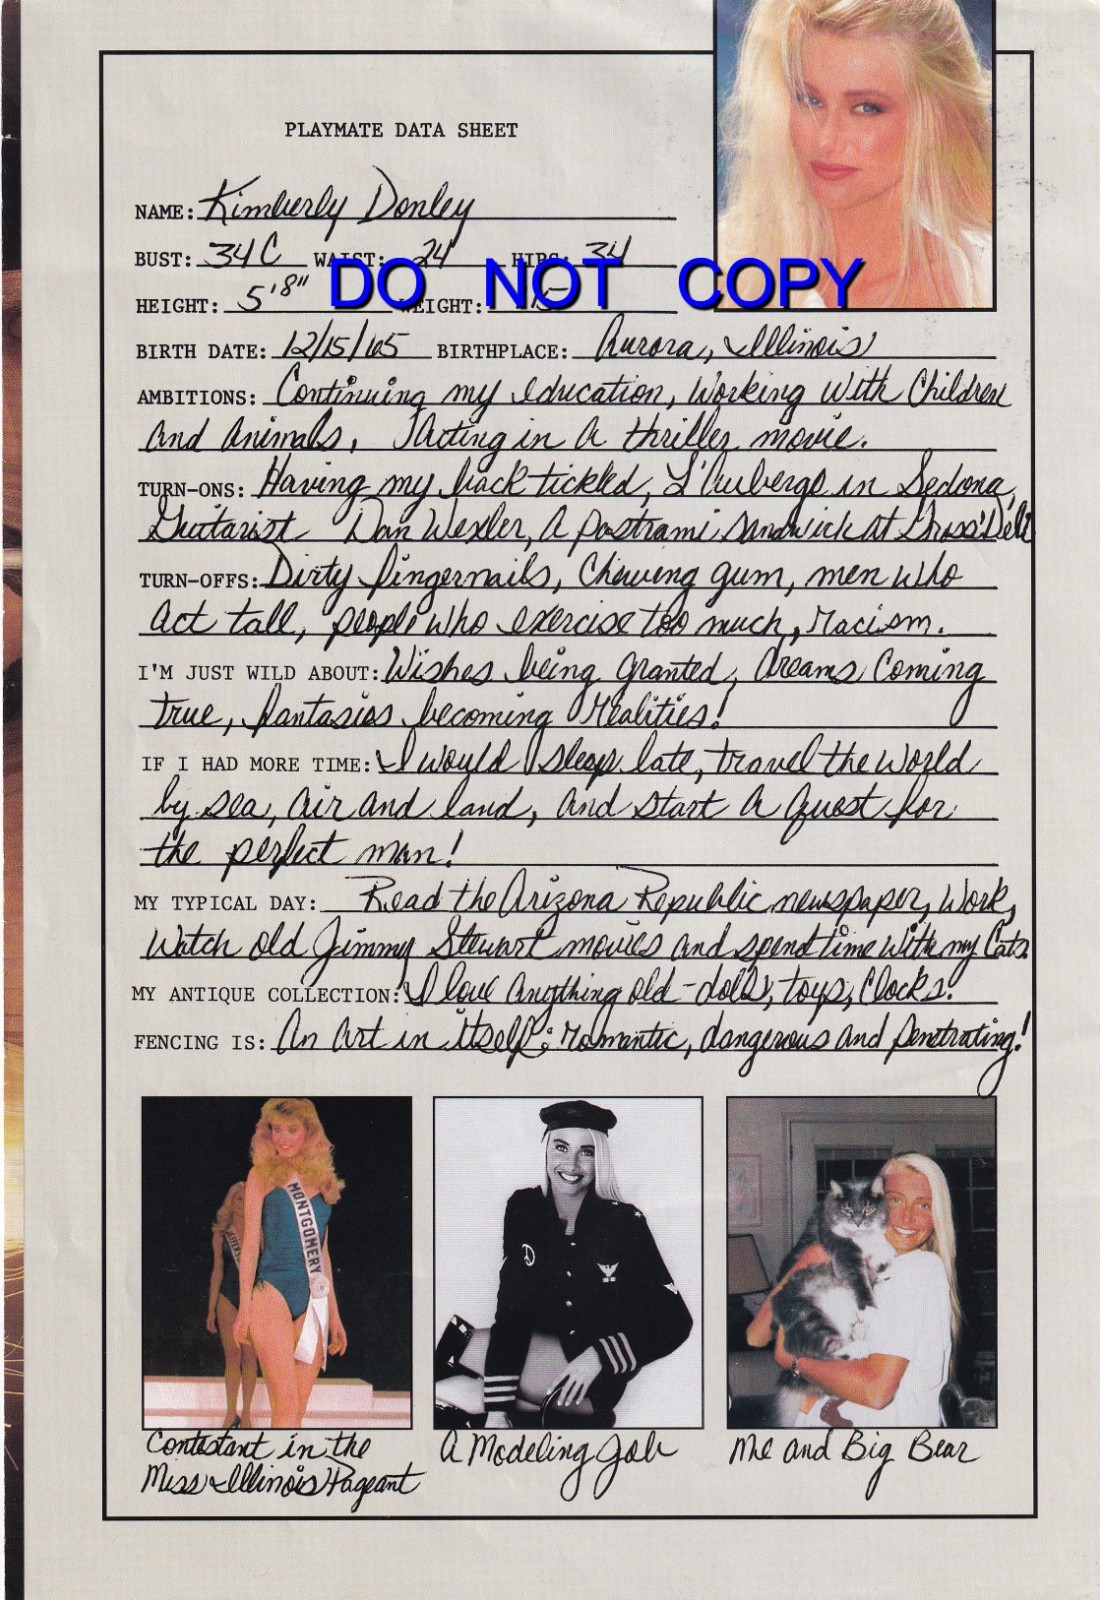 PLAYMATE DATA SHEET
NAME: Kimberly Donley
BUST: 34C WAIST: 24 HIPS: 34
DO NOT COPY
HEIGHT: 5'8" WEIGHT:
BIRTH DATE: 12/15/65 BIRTHPLACE: Aurora, Illinois
AMBITIONS: Continuing my education, Working With Children
and animals, Acting in a thriller movie.
TURN-ONS: Having my back tickled, L'Auberge in Sedona,
Guitarist Dan Wexler, a pastrami sandwich at Gross' Deli
TURN-OFFS: Dirty fingernails, Chewing gum, men who
act tall, people who exercise too much, racism.
I'M JUST WILD ABOUT: Wishes being granted, dreams Coming
true, fantasies becoming realities!
IF I HAD MORE TIME: I would sleep late, travel the world
by sea, air and land, and start a quest for
the perfect man!
MY TYPICAL DAY: Read the Arizona Republic newspaper, Work,
Watch old Jimmy Stewart movies and spend time with my Cats.
MY ANTIQUE COLLECTION: I love anything old-dolls, toys, Clocks.
FENCING IS: An art in itself; romantic, dangerous and penetrating!
MONTGOMERY
Contestant in the
Miss Illinois Pageant
A Modeling Job
Me and Big Bear